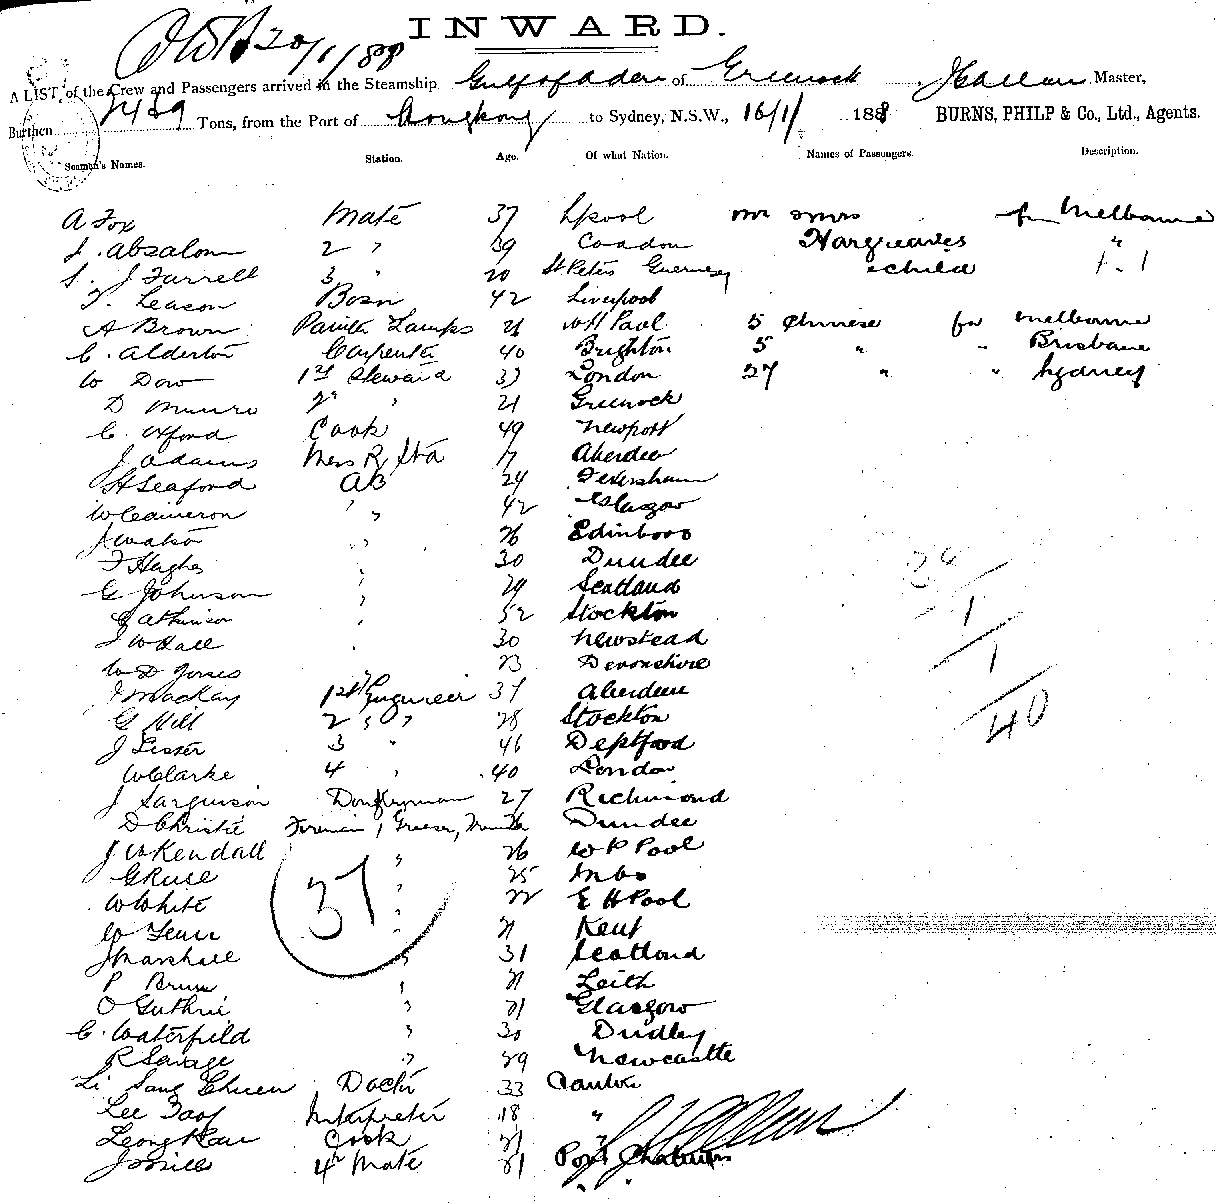 INWARD.
20/1/88
A LIST of the Crew and Passengers arrived in the Steamship Gulf of Aden of Greenock Master,
Burthen 2439 Tons, from the Port of Hongkong to Sydney, N.S.W., 16/1/ 1888 BURNS, PHILP & Co., Ltd., Agents.
Seaman's Names. Station. Age. Of what Nation. Names of Passengers. Description.
A Fox Mate 37 Lpool Mr & Mrs for Melbourne
J. Absalom 2 " 39 Hargreaves "
J Farrell 3 " 20 St Peters Guernsey & child 1 - 1
T. Leason Bosn 42 Liverpool
A Brown Painter Lamps 21 W H Pool 5 Chinese for Melbourne
C. Alderton Carpenter 40 Brighton 5 " " Brisbane
W Dow 1st Steward 37 London 27 " " Sydney
D Munro 2nd " 21 Greenock
C. Oxford Cook 49 Newport
J Adams Mess R Std 17 Aberdeen
H Seaford AB 24 Feversham
W Cameron " 42 Glasgow
J Watson " 26 Edinboro
F Hughes " 30 Dundee
G Johnson " 29 Scotland
G Atkinson " 52 Stockton
J W Hall " 30 Newstead
W D Jones 23 Devonshire
J Mackay 1st Engineer 37 Aberdeen
G Hill 2 " " 28 Stockton
J Lister 3 " 46 Deptford
W Clarke 4 " 40 London
J Sarguison Donkeyman 27 Richmond
D Christie Fireman, Greaser, Trimmer 26 Dundee
J W Kendall " 26 W P Pool
G Ruse " 25
W White " 22 E H Pool
W " 21 Kent
J Marshall " 31 Scotland
P " 21 Leith
O Guthrie " 21 Glasgow
C. Waterfield " 30 Dudley
R Savage " 29 Newcastle
Li Sang Chuen Doctor 33 Canton
Lee Interpreter 18 "
Leong Kau Cook 21 "
J Mill 4th Mate 21 Port Chalmers
37
1
1
40